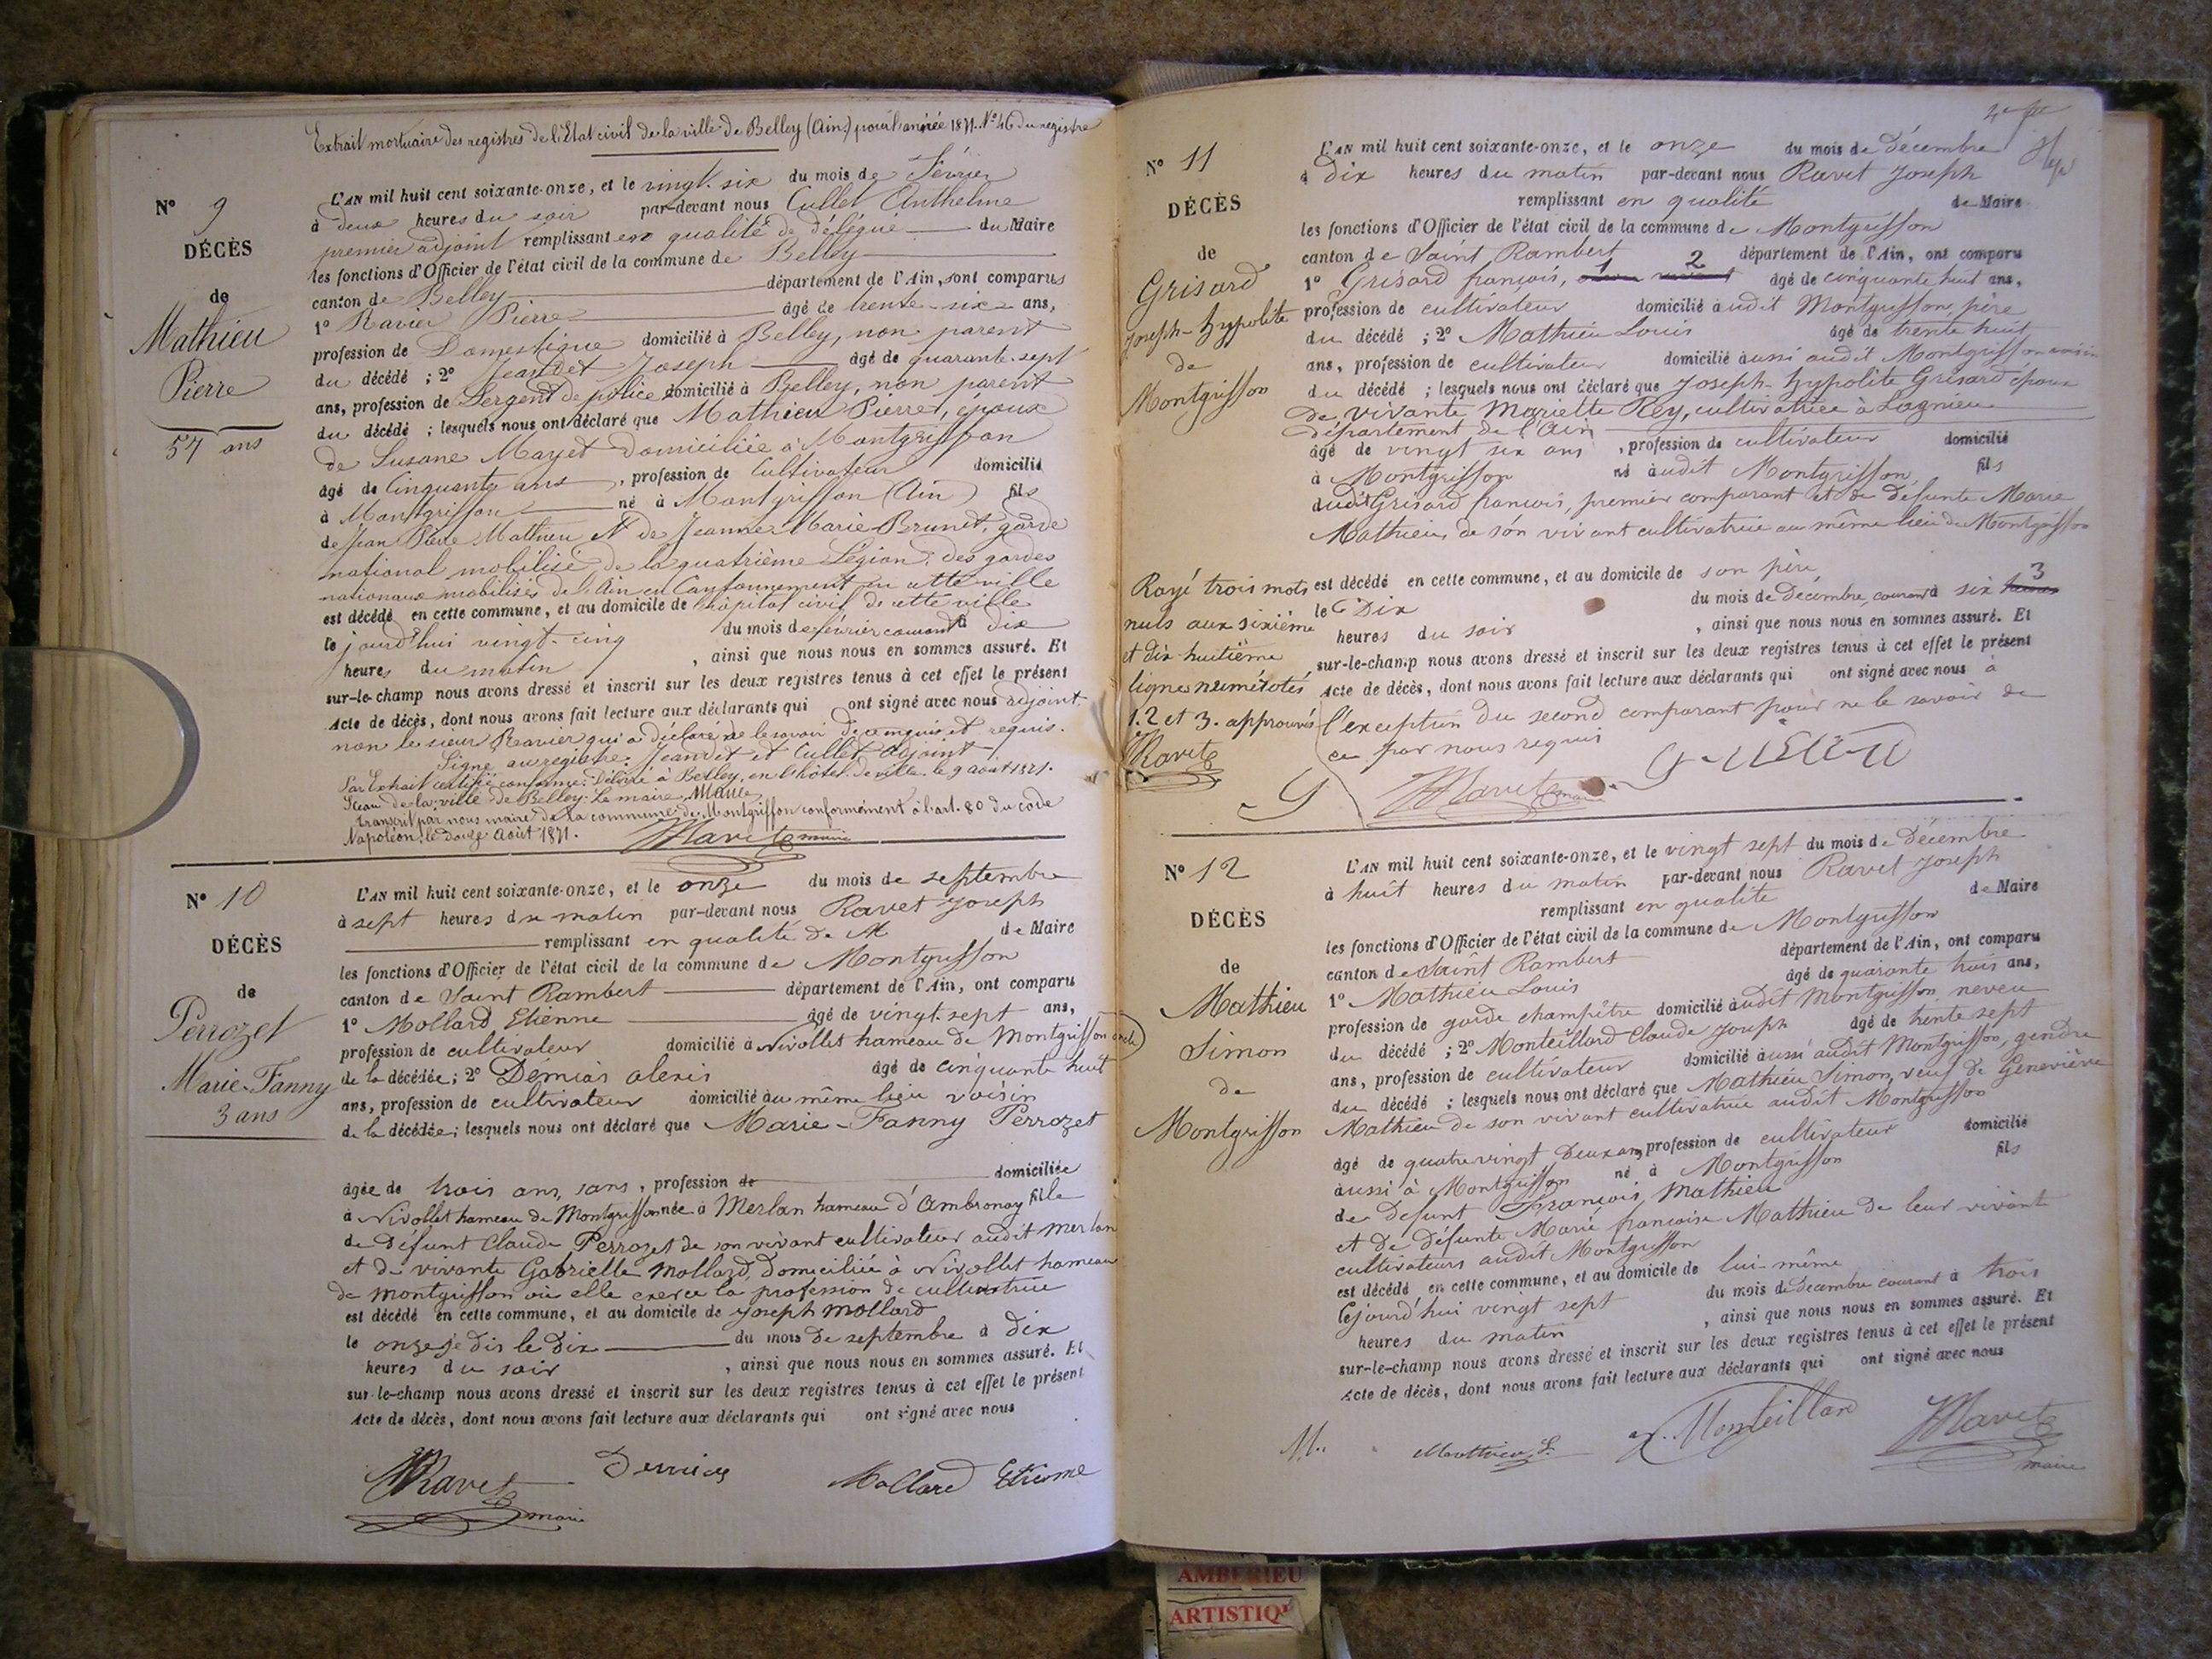 Extrait mortuaire des registres de l'Etat civil de la ville de Belley (Ain) pour l'année 1871. N° 46 du registre
N° 9
DÉCÈS
de
Mathieu
Pierre
57 ans
L'AN mil huit cent soixante-onze, et le vingt-six du mois de Février
à deux heures du soir par-devant nous Cullet Anthelme
premier adjoint remplissant en qualité de délégué du Maire
les fonctions d'Officier de l'état civil de la commune de Belley
canton de Belley département de l'Ain, sont comparus
1° Ravier Pierre âgé de trente-six ans,
profession de Domestique domicilié à Belley, non parent
du décédé ; 2° Jeandet Joseph âgé de quarante-sept
ans, profession de Sergent de police domicilié à Belley, non parent
du décédé ; lesquels nous ont déclaré que Mathieu Pierre, époux
de Susane Mayet domiciliée à Montgriffon
âgé de Cinquante ans, profession de Cultivateur domicilié
à Montgriffon né à Montgriffon (Ain) fils
de Jean Pierre Mathieu et de Jeanne Marie Brunet, garde
national mobilisé de la quatrième Légion des gardes
nationaux mobilisés de l'Ain en Cantonnement en cette ville
est décédé en cette commune, et au domicile de l'hôpital civil de cette ville
le jourd'hui vingt-cinq du mois de février courant à dix
heures du matin, ainsi que nous nous en sommes assuré. Et
sur-le-champ nous avons dressé et inscrit sur les deux registres tenus à cet effet le présent
Acte de décès, dont nous avons fait lecture aux déclarants qui ont signé avec nous adjoint
non le sieur Ravier qui a déclaré ne le savoir de ce enquis et requis.
Signé au registre: Jeandet et Cullet adjoint
Par Extrait certifié conforme: Délivré à Belley, en l'hôtel de ville le 9 août 1871.
Sceau de la ville de Belley: Le maire,
Transcrit par nous maire de la commune de Montgriffon conformément à l'art. 80 du code
Napoléon, le douze Août 1871. Ravet maire
N° 10
DÉCÈS
de
Perrozet
Marie-Fanny
3 ans
L'AN mil huit cent soixante-onze, et le onze du mois de septembre
à sept heures du matin par-devant nous Ravet Joseph
remplissant en qualité de M de Maire
les fonctions d'Officier de l'état civil de la commune de Montgriffon
canton de Saint Rambert département de l'Ain, ont comparu
1° Mollard Etienne âgé de vingt-sept ans,
profession de cultivateur domicilié à Nivollet hameau de Montgriffon oncle
de la décédée; 2° Demias alexis âgé de cinquante huit
ans, profession de cultivateur domicilié au même lieu voisin
de la décédée; lesquels nous ont déclaré que Marie-Fanny Perrozet
âgée de trois ans, sans, profession de domiciliée
à Nivollet hameau de Montgriffon née à Merlan hameau d'Ambronay fille
de défunt Claude Perrozet de son vivant cultivateur audit merlan
et de vivante Gabrielle Mollard, Domiciliée à Nivollet hameau
de montgriffon où elle exerce la profession de cultivatrice
est décédé en cette commune, et au domicile de Joseph Mollard
le onze je dis le dix du mois de septembre à dix
heures du soir, ainsi que nous nous en sommes assuré. Et
sur-le-champ nous avons dressé et inscrit sur les deux registres tenus à cet effet le présent
Acte de décès, dont nous avons fait lecture aux déclarants qui ont signé avec nous
Ravet maire Demias Mollard Etienne
N° 11
DÉCÈS
de
Grisard
Joseph-hypolite
de
Montgriffon
L'AN mil huit cent soixante-onze, et le onze du mois de décembre
à dix heures du matin par-devant nous Ravet Joseph
remplissant en qualité de Maire
les fonctions d'Officier de l'état civil de la commune de Montgriffon
canton de Saint Rambert département de l'Ain, ont comparu
1° Grisard françois, 1 2 âgé de cinquante huit ans,
profession de cultivateur domicilié audit Montgriffon, père
du décédé ; 2° Mathieu Louis âgé de trente huit
ans, profession de cultivateur domicilié aussi audit Montgriffon voisin
du décédé ; lesquels nous ont déclaré que Joseph-hypolite Grisard époux
de vivante Mariette Rey, cultivatrice à Lagnieu
département de l'Ain
âgé de vingt six ans, profession de cultivateur domicilié
à Montgriffon né audit Montgriffon, fils
dudit Grisard francois, premier comparant et de defunte Marie
Mathieu, de son vivant cultivatrice au même lieu de Montgriffon
est décédé en cette commune, et au domicile de son père
le Dix du mois de Décembre, courant à six 3
heures du soir, ainsi que nous nous en sommes assuré. Et
sur-le-champ nous avons dressé et inscrit sur les deux registres tenus à cet effet le présent
Acte de décès, dont nous avons fait lecture aux déclarants qui ont signé avec nous à
l'exception du second comparant pour ne le savoir de
ce par nous requis
Rayé trois mots
nuls aux sixième
et dix-huitième
lignes numérotés
1. 2 et 3. approuvés
Ravet
Ravet maire
N° 12
DÉCÈS
de
Mathieu
Simon
de
Montgriffon
L'AN mil huit cent soixante-onze, et le vingt sept du mois de Décembre
à huit heures du matin par-devant nous Ravet Joseph
remplissant en qualité de Maire
les fonctions d'Officier de l'état civil de la commune de Montgriffon
canton de Saint Rambert département de l'Ain, ont comparu
1° Mathieu Louis âgé de quarante trois ans,
profession de garde champêtre domicilié audit Montgriffon, neveu
du décédé ; 2° Monteillard Claude Joseph âgé de trente sept
ans, profession de cultivateur domicilié aussi audit Montgriffon, gendre
du décédé ; lesquels nous ont déclaré que Mathieu Simon, veuf de Geneviève
Mathieu de son vivant cultivatrice audit Montgriffon
âgé de quatre vingt Deux ans, profession de cultivateur domicilié
aussi à Montgriffon né à Montgriffon fils
de Defunt François Mathieu
et de défunte Marie françoise Mathieu de leur vivant
cultivateurs audit Montgriffon
est décédé en cette commune, et au domicile de lui-même
le jourd'hui vingt sept du mois de Décembre courant à trois
heures du matin, ainsi que nous nous en sommes assuré. Et
sur-le-champ nous avons dressé et inscrit sur les deux registres tenus à cet effet le présent
Acte de décès, dont nous avons fait lecture aux déclarants qui ont signé avec nous
M. Matthieu L. Monteillard Ravet
maire
AMBERIEU
ARTISTIQU